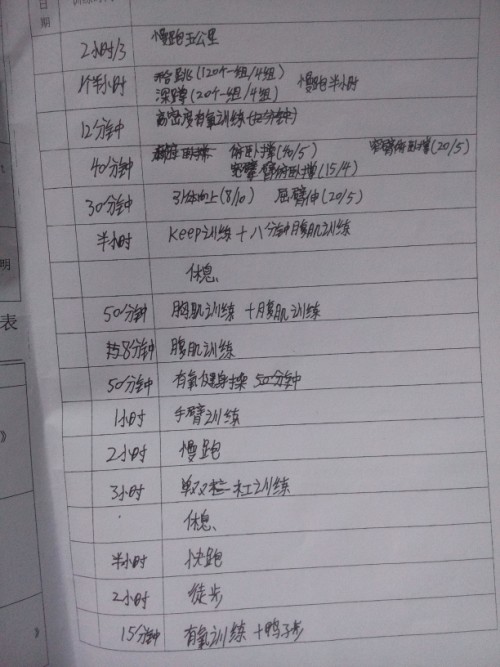 日期
2小时/3 慢跑五公里
1个半小时 抬跳(120个一组/4组)
深蹲(20个一组/4组) 慢跑半小时
12分钟 高密度有氧训练(12分钟)
40分钟 俯卧撑(40/5) 窄臂俯卧撑(20/5)
宽臂俯卧撑(15/4)
30分钟 引体向上(8/10) 屈臂伸(20/5)
半小时 Keep训练+八分钟腹肌训练
休息
50分钟 胸肌训练+腹肌训练
8分钟 腹肌训练
50分钟 有氧健身操 50分钟
1小时 手臂训练
2小时 慢跑
3小时 单双杠训练
休息
半小时 快跑
2小时 徒步
15分钟 有氧训练+鸭子步
明
表
》
》